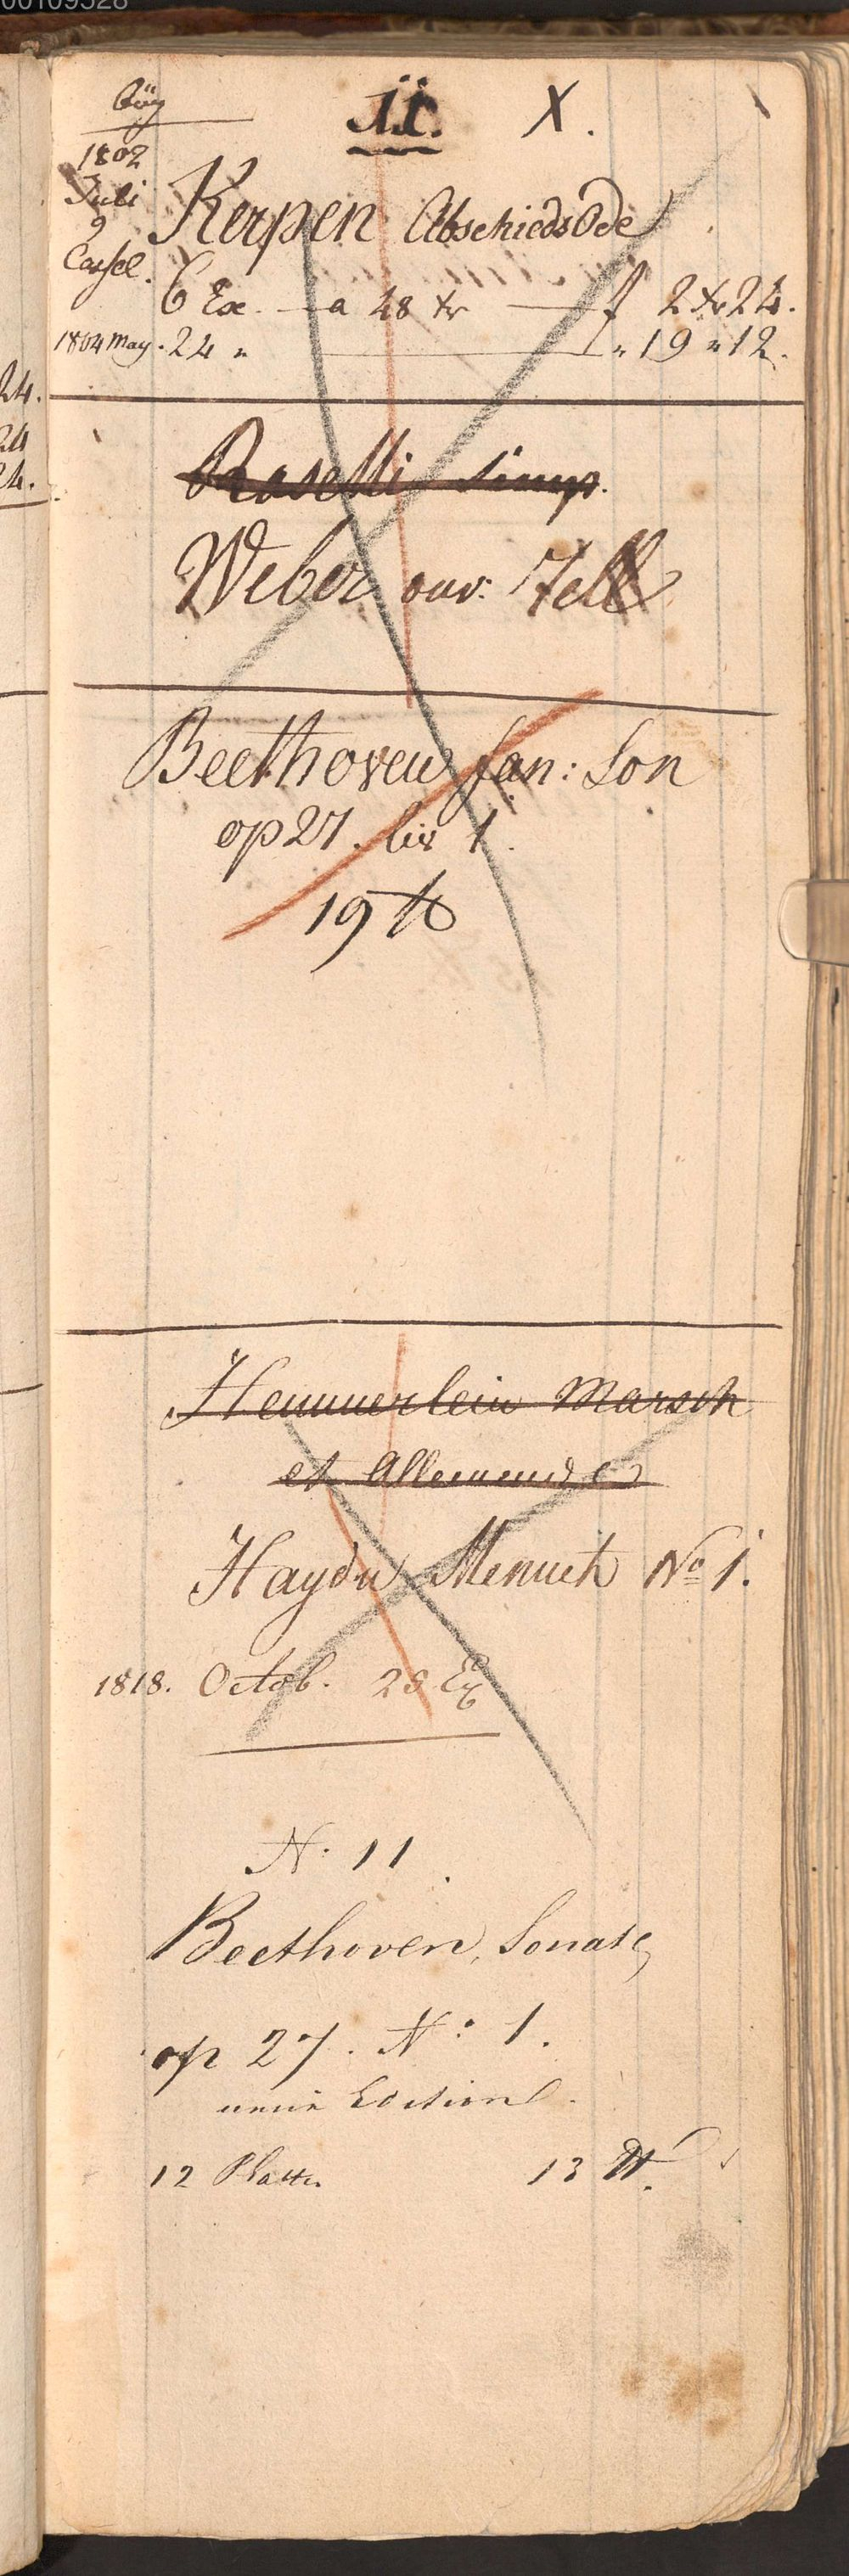 00109528
11. X.
1802
Juli
9
Cassel.
Kerpen AbschiedsOde
6 Ex. a 48 xr f 2 xr 24.
1804 May. 24 " " 19 " 12.
24.
24
24.
Rosetti simp.
Weber ouv: Tell
Beethoven fan: Son
op 27. liv 1.
19 ℔
Hemmerlein Marsch
et Allemande
Haydn Menuet No 1.
1818. Octob. 25 Ex
N: 11
Beethoven, Sonate
op 27. N: 1.
neue Edition.
12 Platten 13 ℔.